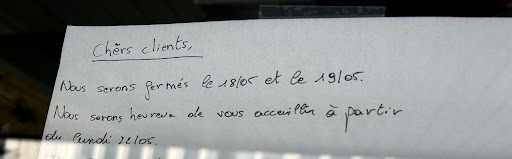 Chers clients,
Nous serons fermés le 18/05 et le 19/05.
Nous serons heureux de vous accueillir à partir
du lundi 22/05.